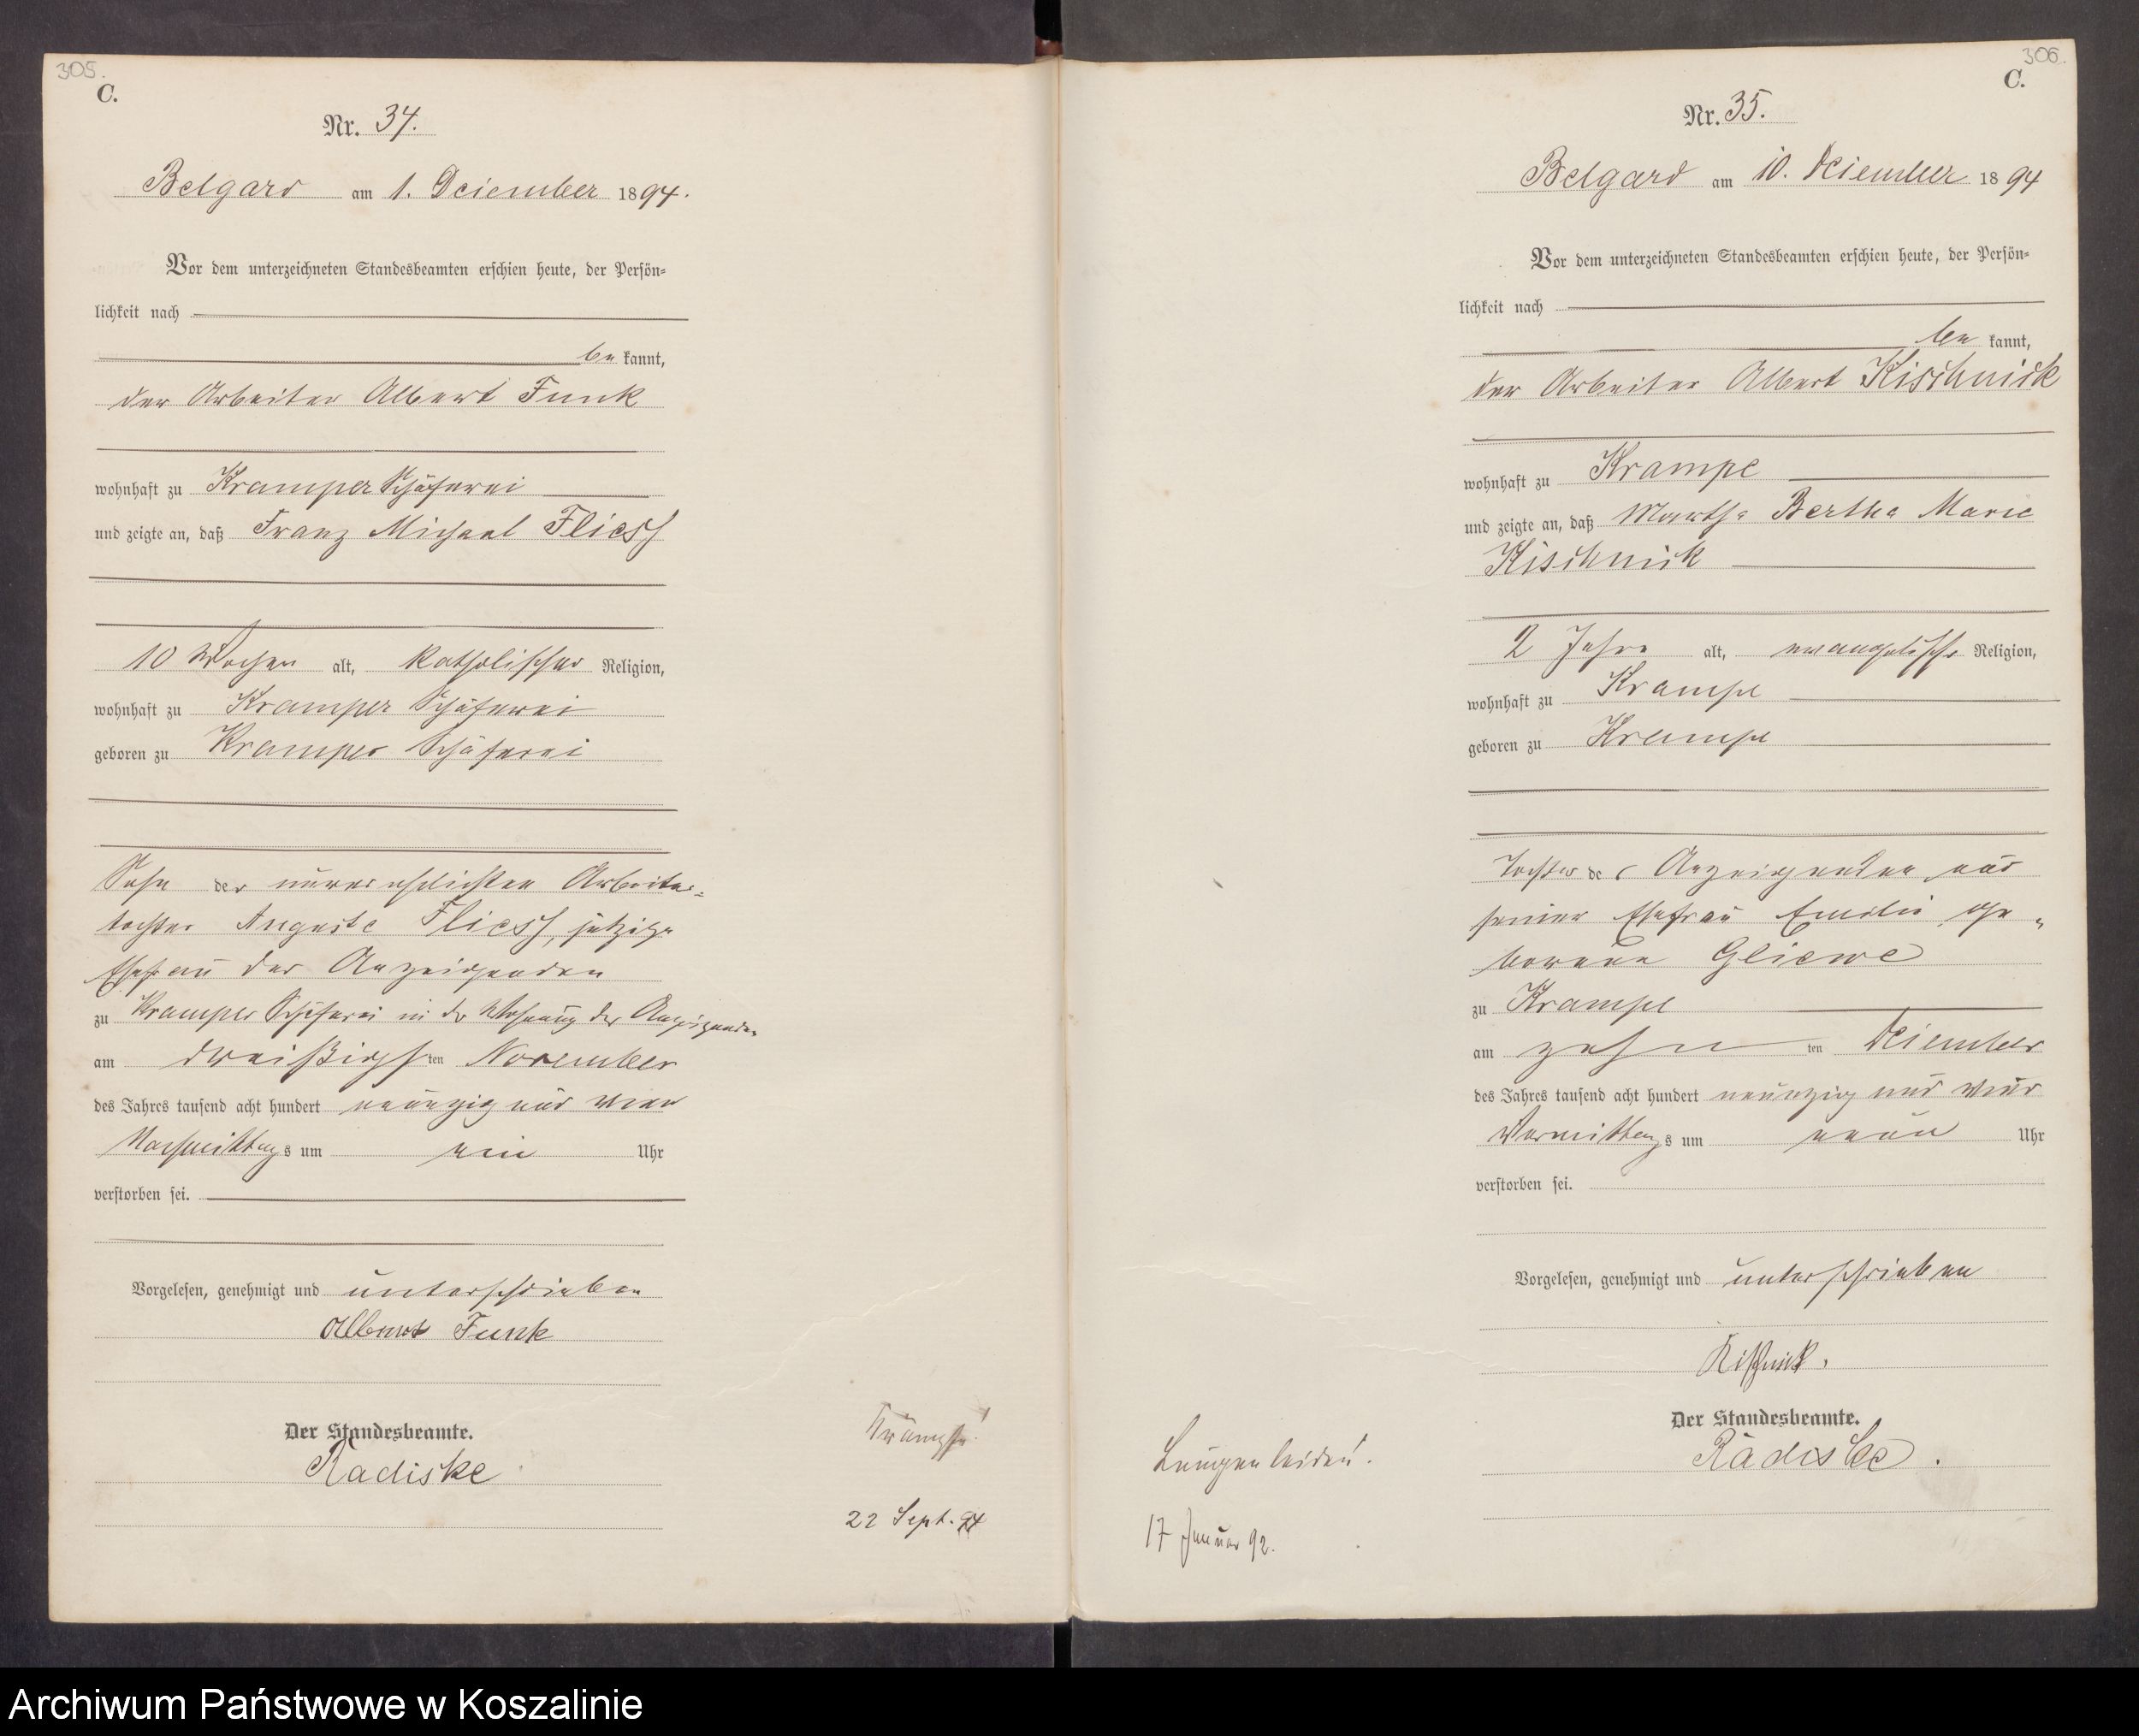 305.
C.
Nr. 34.
Belgard am 1. Dezember 1894.
Vor dem unterzeichneten Standesbeamten erschien heute, der Persön-
lichkeit nach
be kannt,
der Arbeiter Albert Funk
wohnhaft zu Kramper Schäferei
und zeigte an, daß Franz Michael Fliess
10 Wochen alt, katholischer Religion,
wohnhaft zu Kramper Schäferei
geboren zu Kramper Schäferei
Sohn der unverehelichten Arbeiter-
tochter Auguste Fliess, jetzige
Ehefrau des Anzeigenden
zu Kramper Schäferei in der Wohnung des Anzeigenden
am dreißigsten November
des Jahres tausend acht hundert neunzig und vier
Nachmittags um ein Uhr
verstorben sei.
Vorgelesen, genehmigt und unterschrieben
Albert Funk
Der Standesbeamte.
Radiske
Krämpfe!
22 Sept. 94
306.
C.
Nr. 35.
Belgard am 10. Dezember 1894
Vor dem unterzeichneten Standesbeamten erschien heute, der Persön-
lichkeit nach
be kannt,
der Arbeiter Albert Kischnick
wohnhaft zu Krampe
und zeigte an, daß Martha Bertha Marie
Kischnick
2 Jahre alt, evangelischer Religion,
wohnhaft zu Krampe
geboren zu Krampe
Tochter des Anzeigenden und
seiner Ehefrau Emilie ge-
borene Gliewe
zu Krampe
am zehnten Dezember
des Jahres tausend acht hundert neunzig und vier
Vormittags um neun Uhr
verstorben sei.
Vorgelesen, genehmigt und unterschrieben
Kischnick.
Der Standesbeamte.
Radiske.
Lungenleiden!
17 Januar 92.
Archiwum Państwowe w Koszalinie